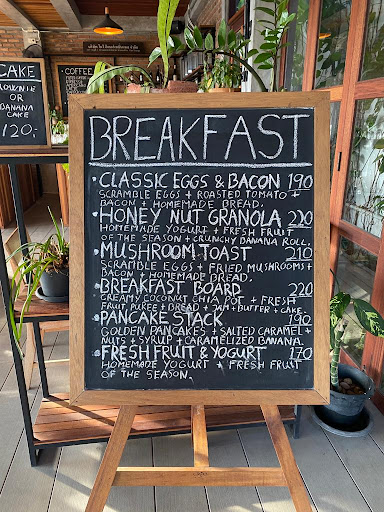 CAKE
BROWNIE
OR
BANANA
CAKE
120.
COFFEE
BREAKFAST
• CLASSIC EGGS & BACON 190
SCRAMBLE EGGS + ROASTED TOMATO +
BACON + HOMEMADE BREAD.
• HONEY NUT GRANOLA 220
HOMEMADE YOGURT + FRESH FRUIT
OF THE SEASON + CRUNCHY BANANA ROLL.
• MUSHROOM TOAST 210
SCRAMBLE EGGS + FRIED MUSHROOMS +
BACON + HOMEMADE BREAD.
• BREAKFAST BOARD 220
CREAMY COCONUT CHIA POT + FRESH
FRUIT PUREE + BREAD + JAM + BUFFER + CAKE.
• PANCAKE STACK 190
GOLDEN PANCAKES + SALTED CARAMEL +
NUTS + SYRUP + CARAMELIZED BANANA.
• FRESH FRUIT & YOGURT 170
HOMEMADE YOGURT + FRESH FRUIT
OF THE SEASON.